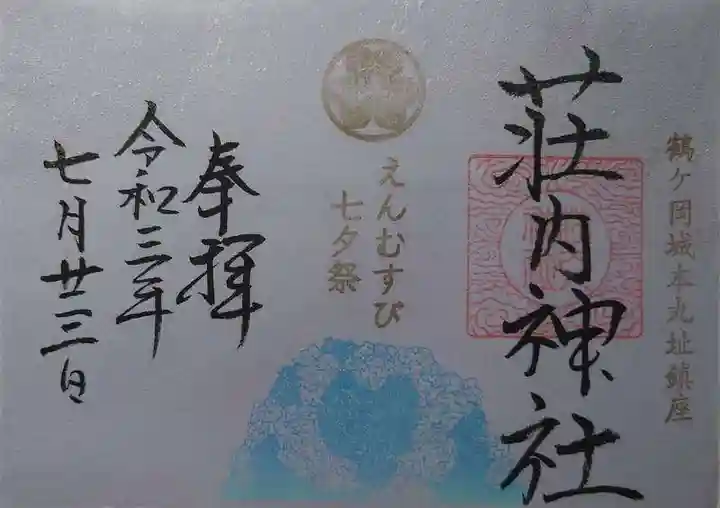 鶴ヶ岡城本丸址鎮座
荘内神社
えんむすび
七夕祭
奉拝
令和三年
七月廿三日